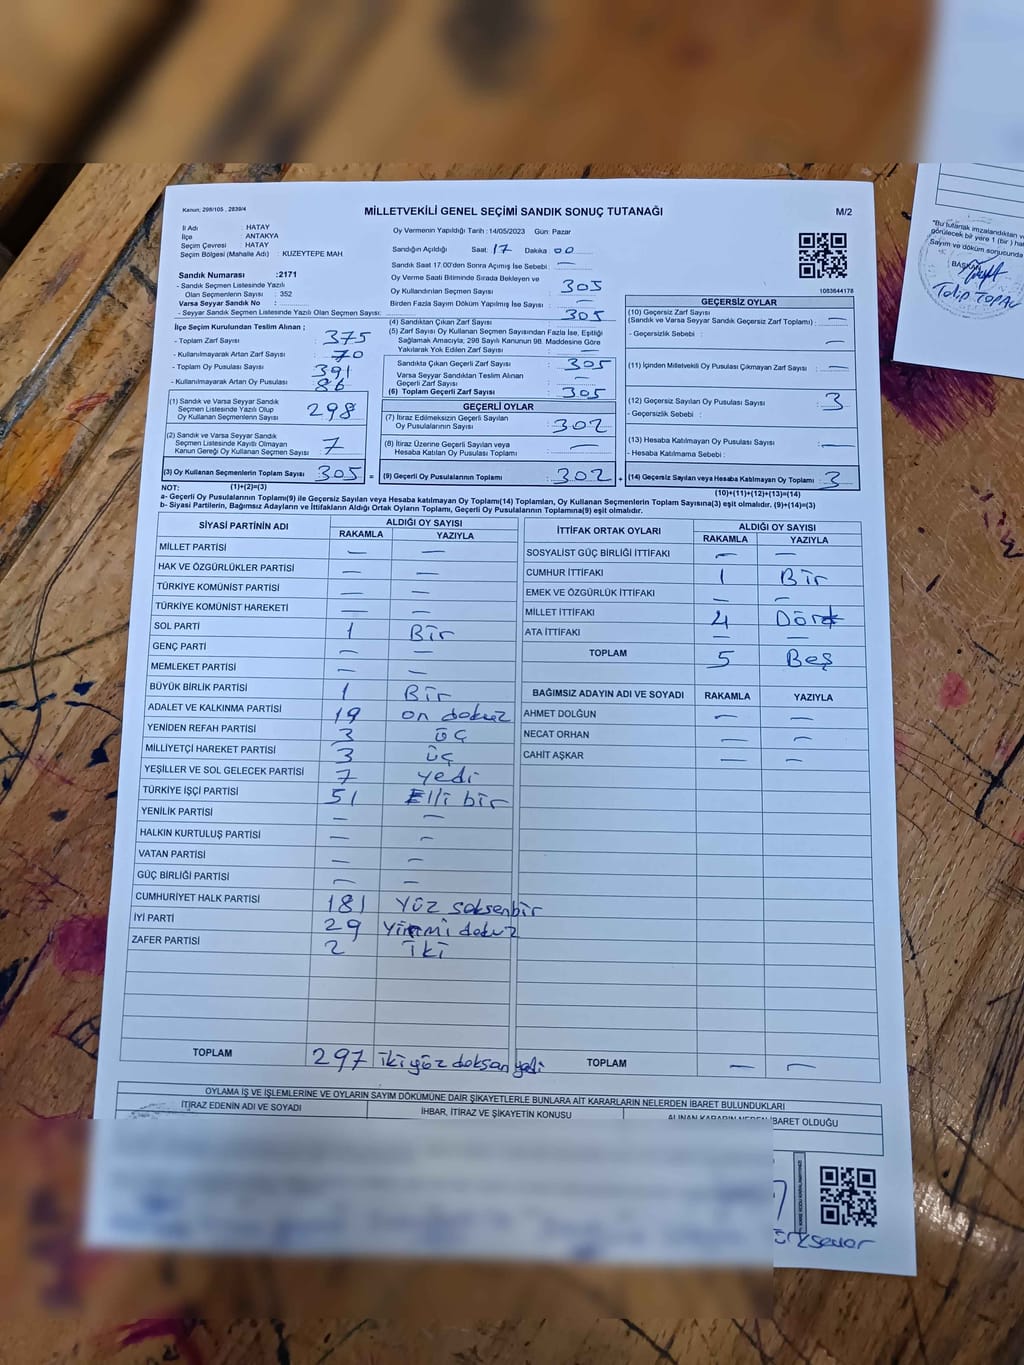 Kanun; 298/105 , 2839/4
MİLLETVEKİLİ GENEL SEÇİMİ SANDIK SONUÇ TUTANAĞI
M/2
İl Adı : HATAY
İlçe : ANTAKYA
Seçim Çevresi : HATAY
Seçim Bölgesi (Mahalle Adı) : KUZEYTEPE MAH
Oy Vermenin Yapıldığı Tarih : 14/05/2023 Gün: Pazar
Sandığın Açıldığı Saat: 17 Dakika 00
Sandık Saat 17.00'den Sonra Açılmış İse Sebebi : —
Oy Verme Saati Bitiminde Sırada Bekleyen ve
Oy Kullandırılan Seçmen Sayısı : 305
Birden Fazla Sayım Döküm Yapılmış İse Sayısı : —
1083644178
Sandık Numarası :2171
- Sandık Seçmen Listesinde Yazılı
Olan Seçmenlerin Sayısı : 352
Varsa Seyyar Sandık No :
- Seyyar Sandık Seçmen Listesinde Yazılı Olan Seçmen Sayısı:
İlçe Seçim Kurulundan Teslim Alınan ;
- Toplam Zarf Sayısı : 375
- Kullanılmayarak Artan Zarf Sayısı : 70
- Toplam Oy Pusulası Sayısı : 391
- Kullanılmayarak Artan Oy Pusulası : 86
(1) Sandık ve Varsa Seyyar Sandık
Seçmen Listesinde Yazılı Olup
Oy Kullanan Seçmenlerin Sayısı : 298
(2) Sandık ve Varsa Seyyar Sandık
Seçmen Listesinde Kayıtlı Olmayan
Kanun Gereği Oy Kullanan Seçmen Sayısı : 7
(3) Oy Kullanan Seçmenlerin Toplam Sayısı : 305 =
(4) Sandıktan Çıkan Zarf Sayısı : 305
(5) Zarf Sayısı Oy Kullanan Seçmen Sayısından Fazla İse, Eşitliği
Sağlamak Amacıyla; 298 Sayılı Kanunun 98. Maddesine Göre
Yakılarak Yok Edilen Zarf Sayısı : —
Sandıkta Çıkan Geçerli Zarf Sayısı : 305
Varsa Seyyar Sandıktan Teslim Alınan
Geçerli Zarf Sayısı : —
(6) Toplam Geçerli Zarf Sayısı : 305
GEÇERLİ OYLAR
(7) İtiraz Edilmeksizin Geçerli Sayılan
Oy Pusulalarının Sayısı : 302
(8) İtiraz Üzerine Geçerli Sayılan veya
Hesaba Katılan Oy Pusulası Toplamı : —
(9) Geçerli Oy Pusulalarının Toplamı : 302 +
GEÇERSİZ OYLAR
(10) Geçersiz Zarf Sayısı
(Sandık ve Varsa Seyyar Sandık Geçersiz Zarf Toplamı) : —
- Geçersizlik Sebebi : —
(11) İçinden Milletvekili Oy Pusulası Çıkmayan Zarf Sayısı : —
(12) Geçersiz Sayılan Oy Pusulası Sayısı : 3
- Geçersizlik Sebebi :
(13) Hesaba Katılmayan Oy Pusulası Sayısı : —
- Hesaba Katılmama Sebebi :
(14) Geçersiz Sayılan veya Hesaba Katılmayan Oy Toplamı : 3
NOT: (1)+(2)=(3)
(10)+(11)+(12)+(13)=(14)
a- Geçerli Oy Pusulalarının Toplamı(9) ile Geçersiz Sayılan veya Hesaba katılmayan Oy Toplamı(14) Toplamları, Oy Kullanan Seçmenlerin Toplam Sayısına(3) eşit olmalıdır. (9)+(14)=(3)
b- Siyasi Partilerin, Bağımsız Adayların ve İttifakların Aldığı Ortak Oyların Toplamı, Geçerli Oy Pusulalarının Toplamına(9) eşit olmalıdır.
SİYASİ PARTİNİN ADI ALDIĞI OY SAYISI
RAKAMLA YAZIYLA
MİLLET PARTİSİ — —
HAK VE ÖZGÜRLÜKLER PARTİSİ — —
TÜRKİYE KOMÜNİST PARTİSİ — —
TÜRKİYE KOMÜNİST HAREKETİ — —
SOL PARTİ 1 Bir
GENÇ PARTİ — —
MEMLEKET PARTİSİ — —
BÜYÜK BİRLİK PARTİSİ 1 Bir
ADALET VE KALKINMA PARTİSİ 19 on dokuz
YENİDEN REFAH PARTİSİ 3 üç
MİLLİYETÇİ HAREKET PARTİSİ 3 üç
YEŞİLLER VE SOL GELECEK PARTİSİ 7 yedi
TÜRKİYE İŞÇİ PARTİSİ 51 Elli bir
YENİLİK PARTİSİ — —
HALKIN KURTULUŞ PARTİSİ — —
VATAN PARTİSİ — —
GÜÇ BİRLİĞİ PARTİSİ — —
CUMHURİYET HALK PARTİSİ 181 Yüz seksenbir
İYİ PARTİ 29 Yirmi dokuz
ZAFER PARTİSİ 2 iki
TOPLAM 297 iki yüz doksan yedi
İTTİFAK ORTAK OYLARI ALDIĞI OY SAYISI
RAKAMLA YAZIYLA
SOSYALİST GÜÇ BİRLİĞİ İTTİFAKI — —
CUMHUR İTTİFAKI 1 Bir
EMEK VE ÖZGÜRLÜK İTTİFAKI — —
MİLLET İTTİFAKI 4 Dört
ATA İTTİFAKI — —
TOPLAM 5 Beş
BAĞIMSIZ ADAYIN ADI VE SOYADI RAKAMLA YAZIYLA
AHMET DOLĞUN — —
NECAT ORHAN — —
CAHİT AŞKAR — —
TOPLAM — —
OYLAMA İŞ VE İŞLEMLERİNE VE OYLARIN SAYIM DÖKÜMÜNE DAİR ŞİKAYETLERLE BUNLARA AİT KARARLARIN NELERDEN İBARET BULUNDUKLARI
İTİRAZ EDENİN ADI VE SOYADI İHBAR, İTİRAZ VE ŞİKAYETİN KONUSU ALINAN KARARIN NEDEN İBARET OLDUĞU
"Bu tutanak imzalandıktan
görülecek bir yere 1 (bir)
Sayım ve döküm sonucunda
BAŞKAN
Talip TOPAL